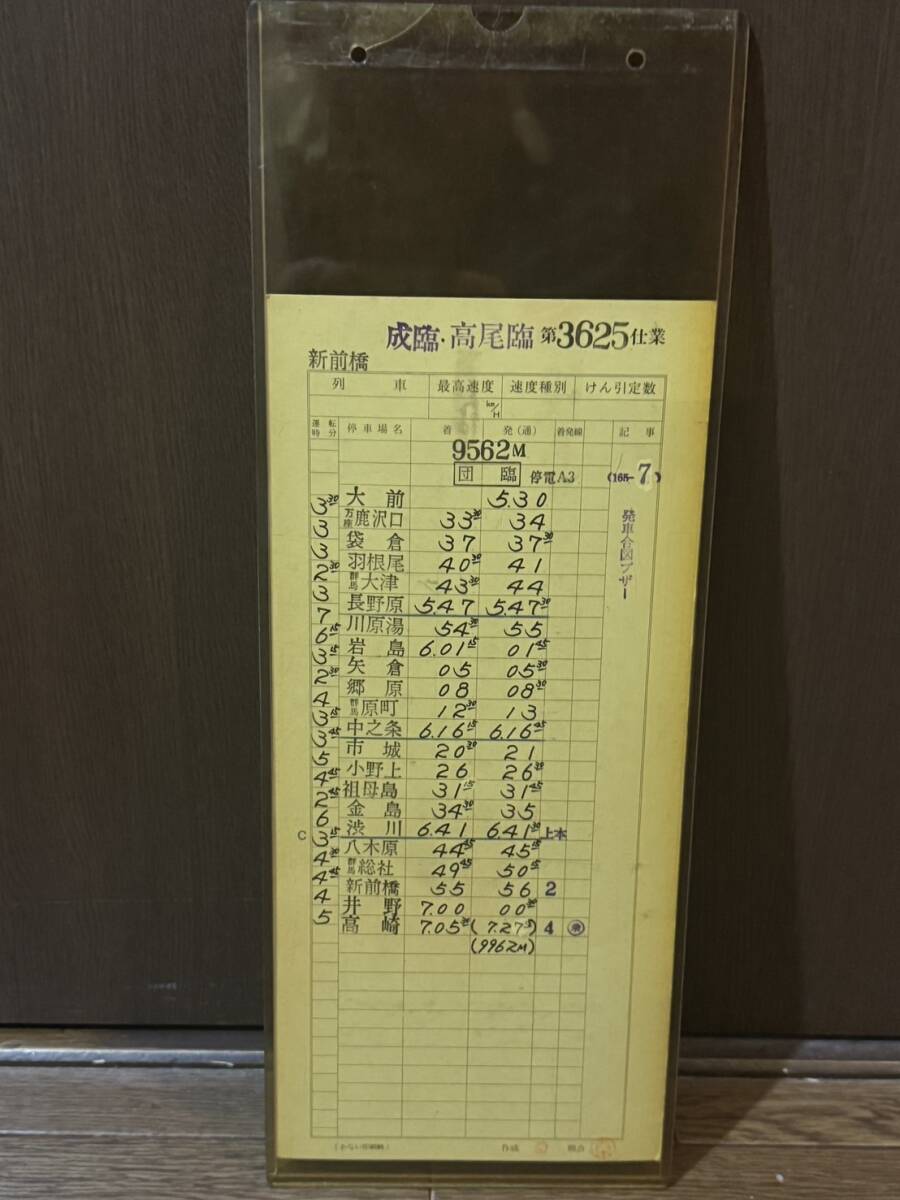 成臨・高尾臨 第3625仕業
新前橋
列 車 最高速度 速度種別 けん引定数
km/H
運転時分 停車場名 着 発(通) 着発線 記事
9562M
団 臨 停電A3 (165-7)
発車合図ブザー
大 前 5.30
3 30
万座鹿沢口 33 30 34
3
袋 倉 37 37 30
3
羽根尾 40 30 41
2 30
群馬大津 43 30 44
3
長野原 5.47 5.47 30
7
川原湯 54 30 55
6 15
岩 島 6.01 15 01 45
3 15
矢 倉 05 05 30
2 30
郷 原 08 08 30
4
群馬原町 12 30 13
3 15
中之条 6.16 15 6.16 45
3 45
市 城 20 30 21
5
小野上 26 26 30
4 45
祖母島 31 15 31 45
2 45
金 島 34 30 35
6
C 渋 川 6.41 6.41 30 上本
3 15
八木原 44 45 45 15
4 30
群馬総社 49 45 50 15
4 45
新前橋 55 56 2
4
井 野 7.00 00 30
5
高 崎 7.05 30 (7.27) 4
(9962M)
作成